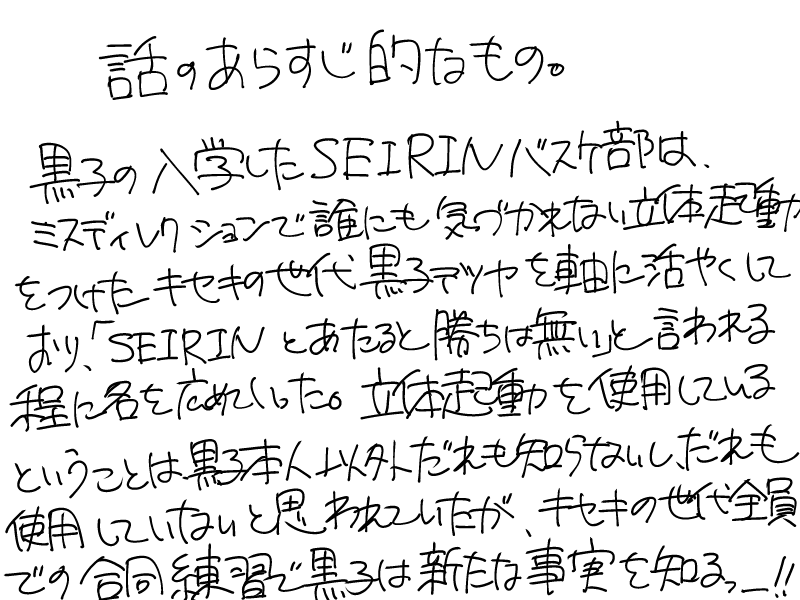 話のあらすじ的なもの。
黒子の入学したSEIRINバスケ部は、
ミスディレクションで誰にも気づかれない立体起動
をつけたキセキの世代黒子テツヤを軸に活やくして
おり、「SEIRINとあたると勝ちは無い」と言われる
程に名を広めていった。立体起動を使用している
ということは黒子本人以外だれも知らないし、だれも
使用していないと思われていたが、キセキの世代全員
での合同練習で黒子は新たな事実を知るっー!!